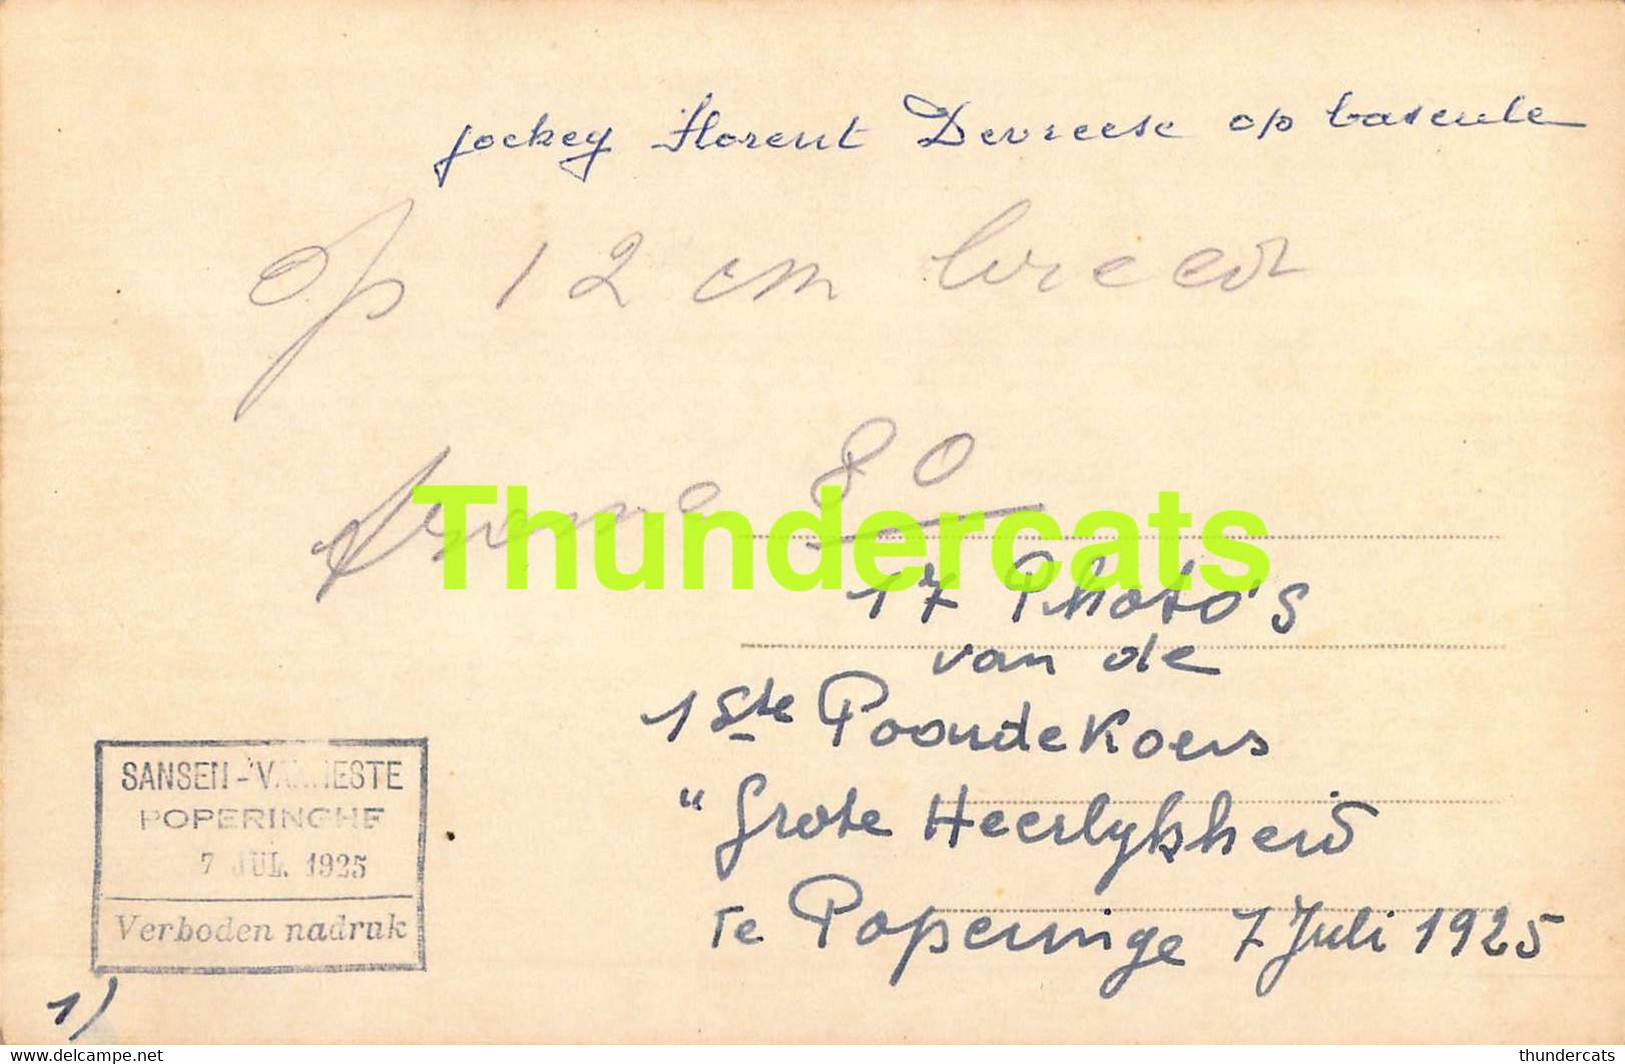 jockey Florent Devreese op bascule
op 12 cm breed
80
Thundercats
17 Photo's
van de
1ste Paardekoers
"Grote Heerlykheid
Te Poperinge 7 Juli 1925
SANSEN-VANNESTE
POPERINGHE
7 JUL. 1925
Verboden nadruk
1)
www.delcampe.net
thundercats